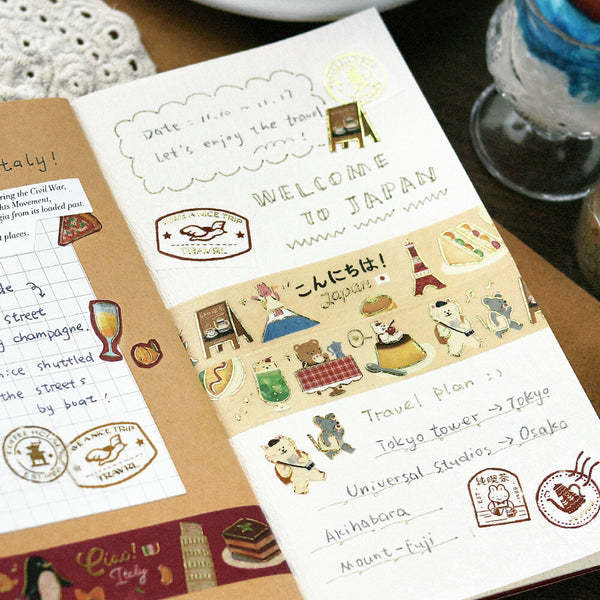 taly!
ring the Civil War,
hts Movement,
gia from its loaded past.
t places.
de
street
g champagne.
nice shuttled
the streets
by boat!
COFFEE HOUSE
WE ARE NICE TRIP
TRAVEL
Ciao!
Italy
Date : 11.10 ~ 11.17
Let's enjoy the travel
!
WELCOME
TO JAPAN
TRAVEL
こんにちは!
Japan
Travel plan :)
Tokyo tower → Tokyo
Universal Studios → Osaka
Akihabara
Mount-Fuji
純喫茶